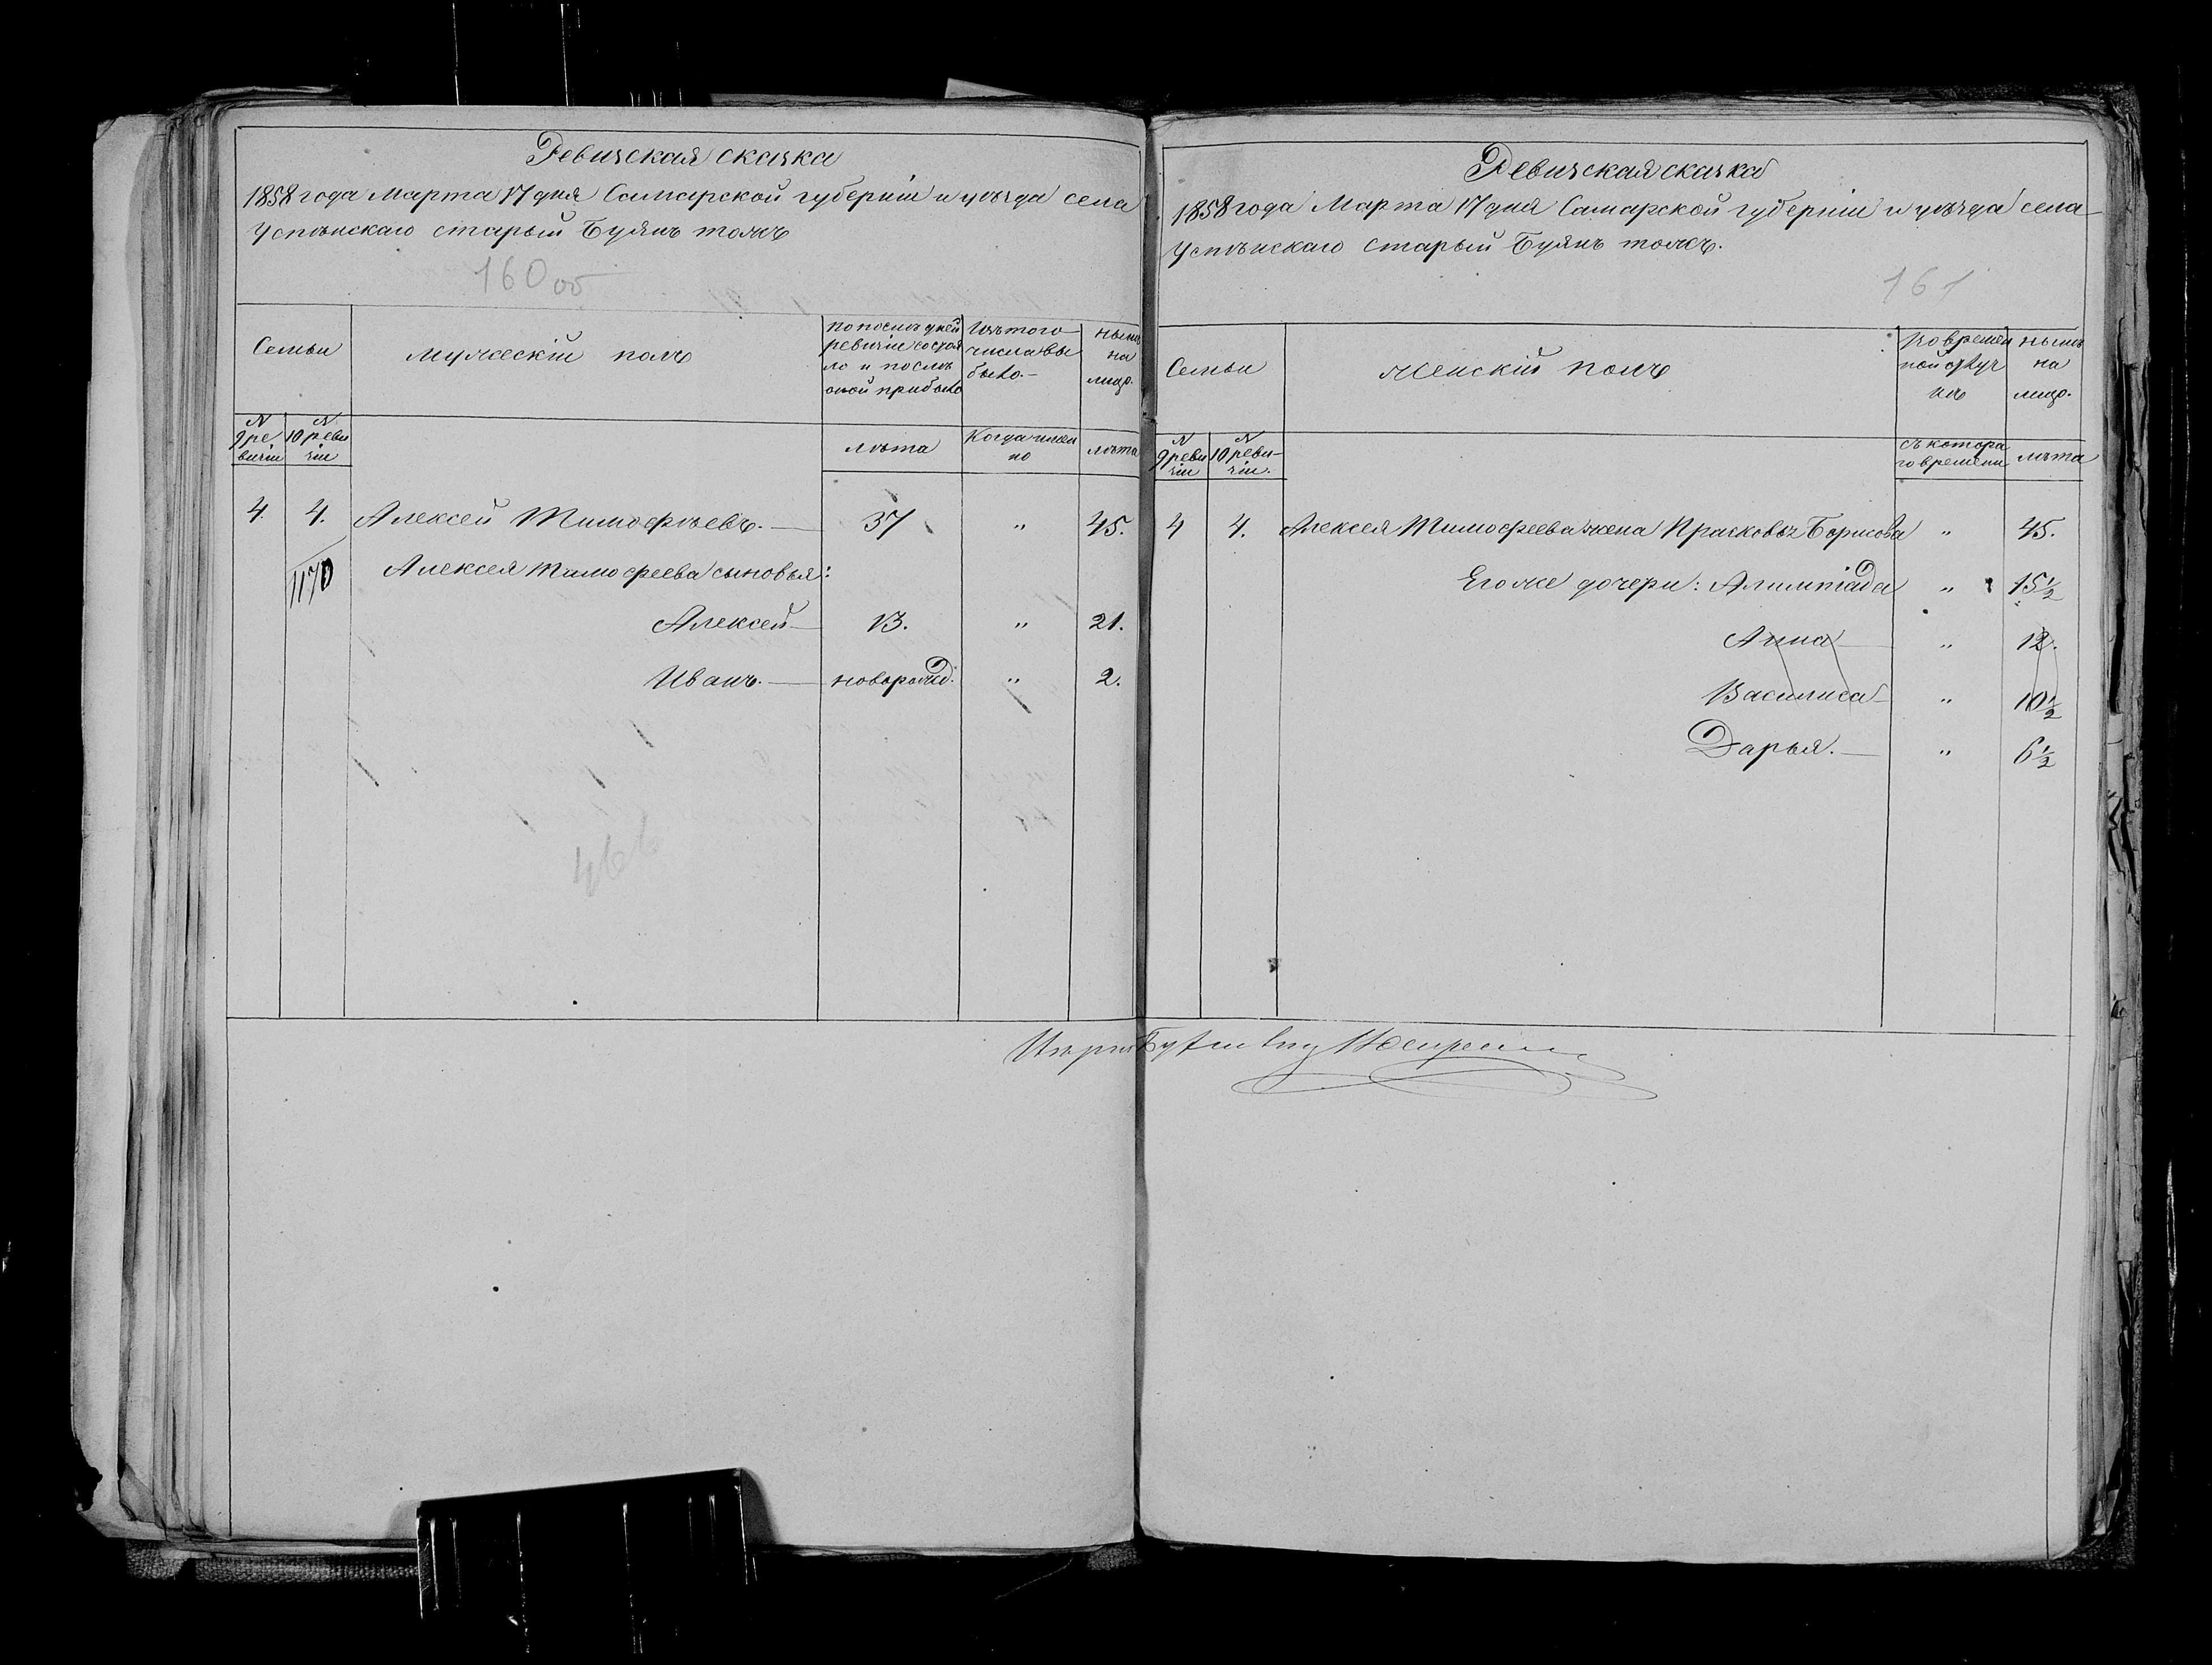 Ревизская сказка
1858 года Марта 17 дня Самарской губерніи и уѣзда села
Успѣнскаго старый Буянъ тожъ
160 об
Семьи
мужескій полъ
по послѣдней
ревизіи состоя
ло и послѣ
оной прибыло
Изъ того
числа вы
было.-
нынѣ
на
лицо.
N
9 ре
визіи
N
10 реви
зіи
лѣта
Когда имен
но
лѣта
4. 4. Алексей Тимофѣевъ. 37 " 45.
1170 Алексея Тимофеева сыновья:
Алексей 13. " 21.
Иванъ. новорожд. " 2.
Ревизская сказка
1858 года Марта 17 дня Самарской губерніи и уѣзда села
Успѣнскаго Старый Буянъ тожъ.
161
Семьи
женскій полъ
Во времен
ной отлуч
кѣ
нынѣ
на
лицо.
N
9 реви
зіи
N
10 реви-
зіи.
съ котора
го времени
лѣта
4 4. Алексея Тимофеева жена Прасковья Борисова " 45.
Его же дочери: Алимпіада " 15½
Анна " 12.
Василиса " 10½
Дарья. " 6½